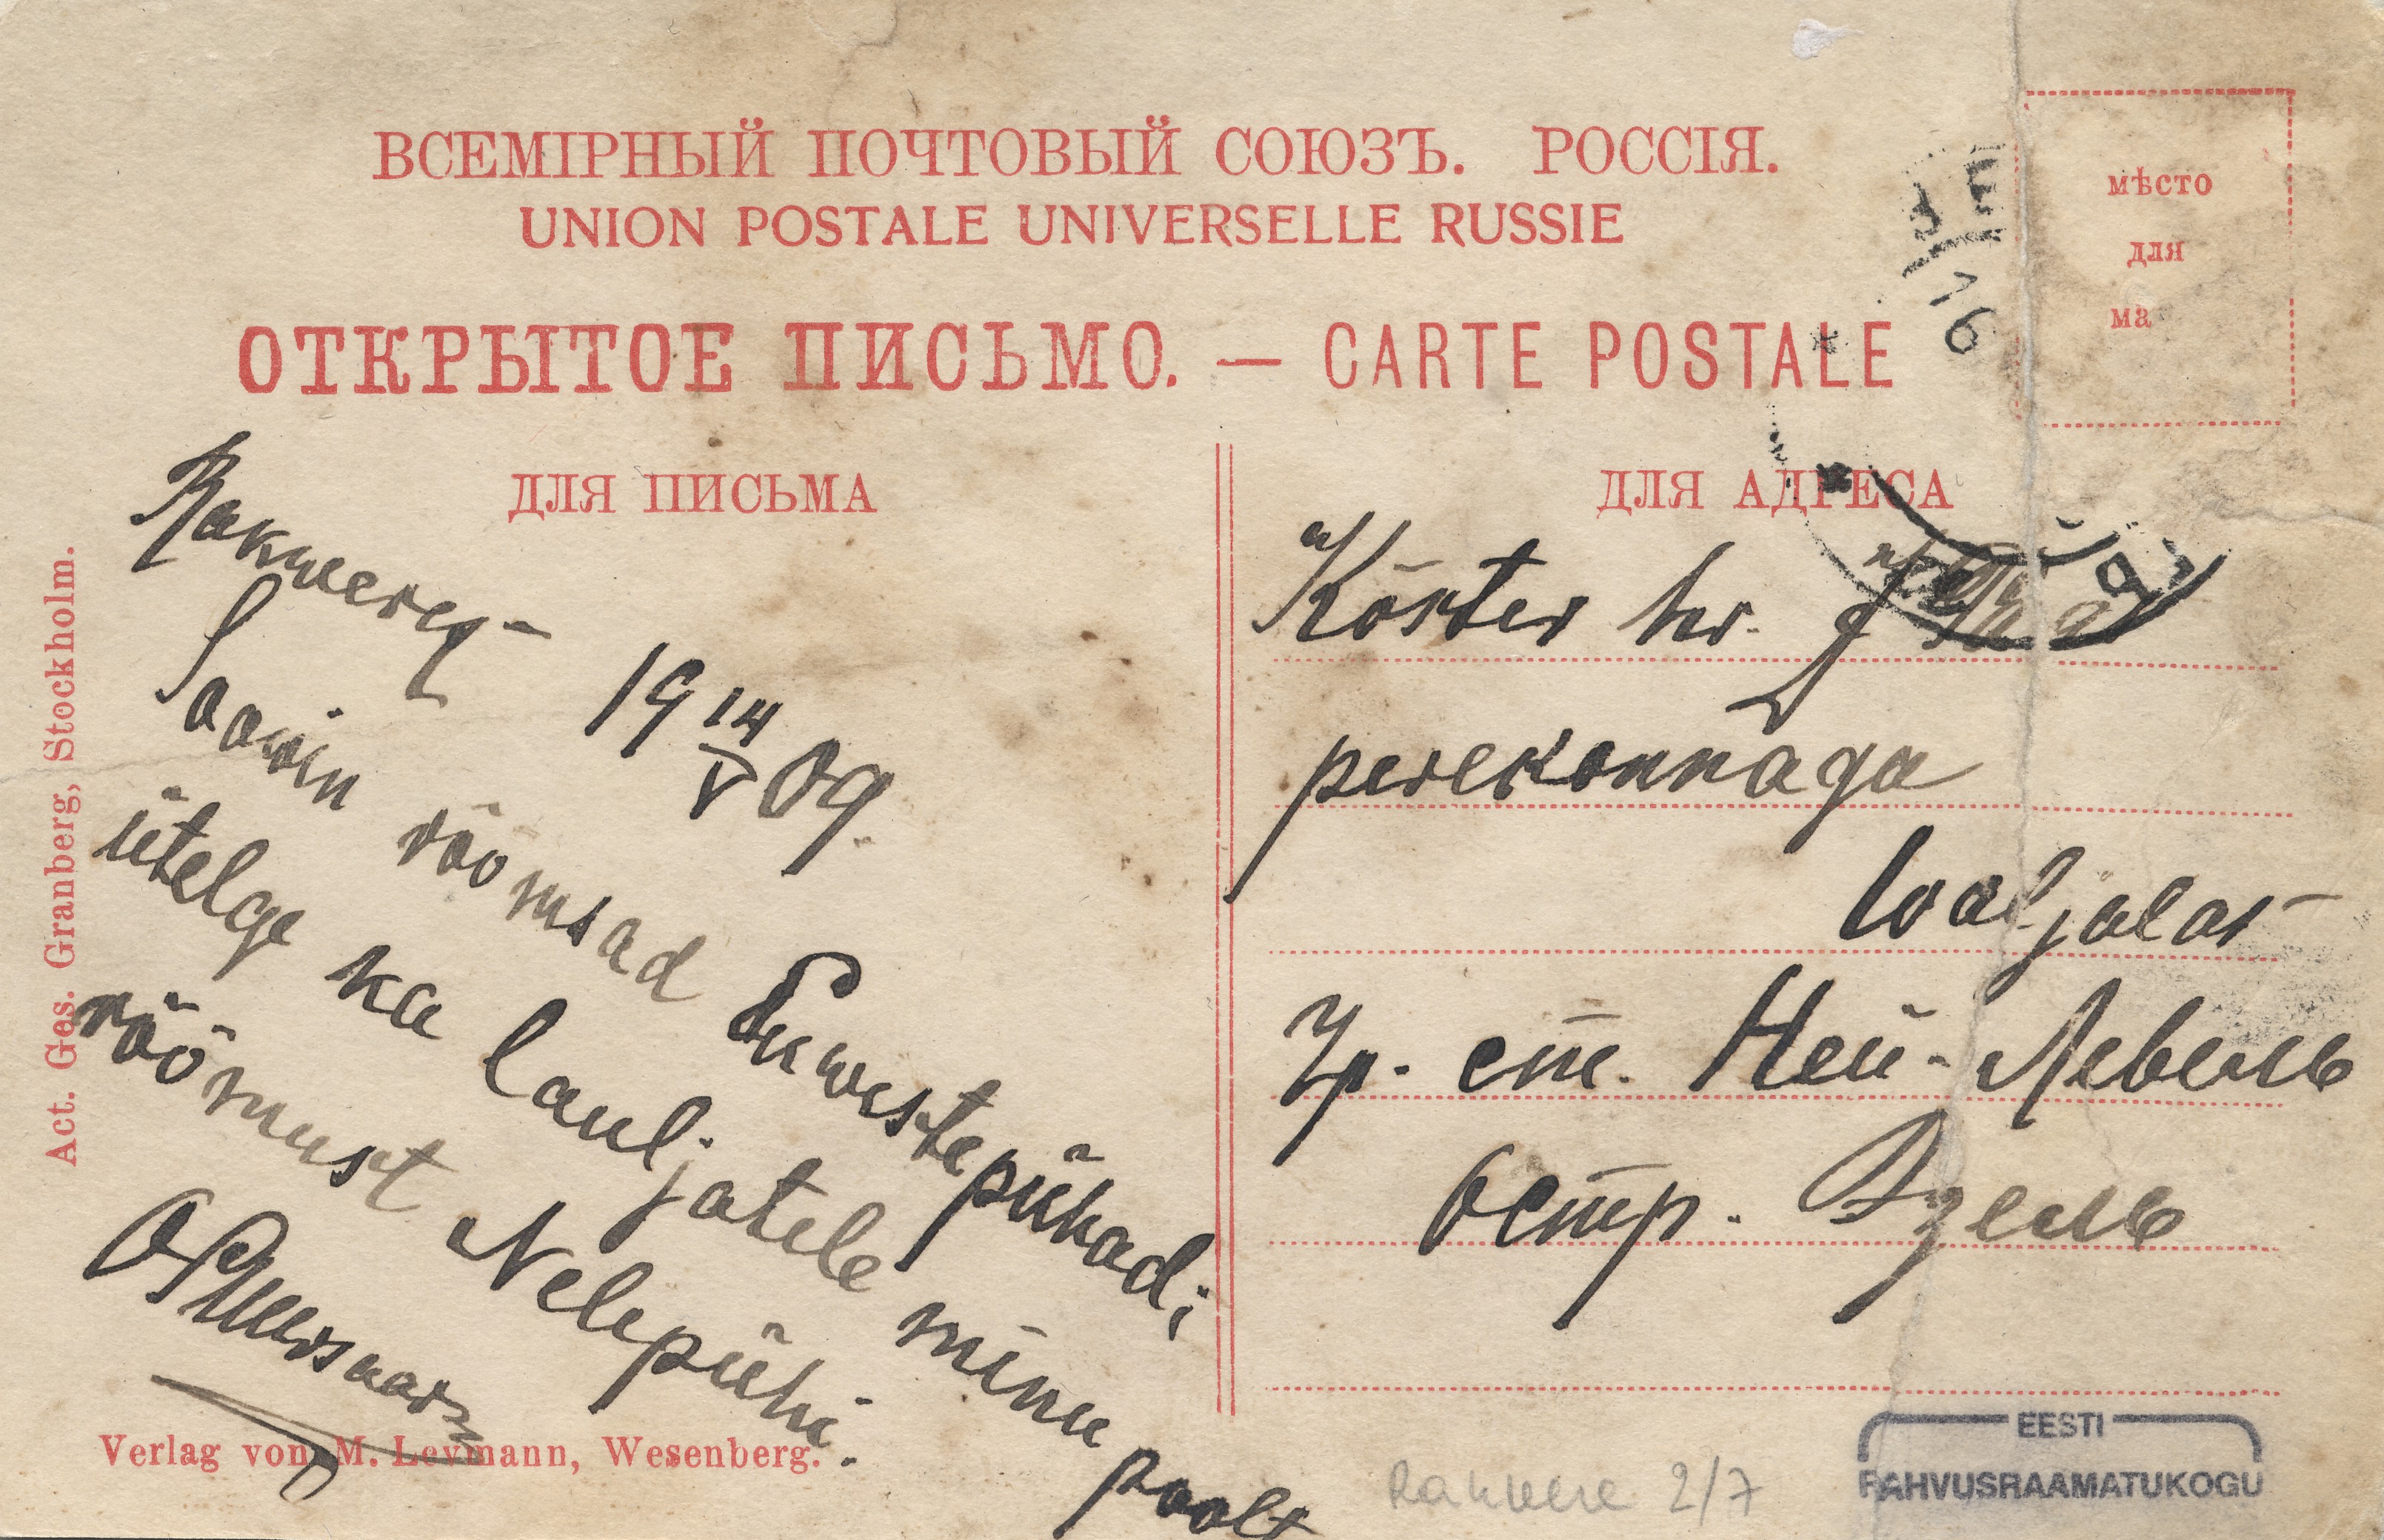 ВСЕМІРНЫЙ ПОЧТОВЫЙ СОЮЗЪ. РОССІЯ.
UNION POSTALE UNIVERSELLE RUSSIE
ОТКРЫТОЕ ПИСЬМО. — CARTE POSTALE
мѣсто
для
ма
ДЛЯ ПИСЬМА
Rakweres
19 14/V 09.
Soowin röömsad Suwistepühad;
ütelge ka lauljatele minu poolt
röömust Nelipühi.
ДЛЯ АДРЕСА
Köster hr.
perekonnaga
Waljalas
Чр. ст. Ней-Левель
Остр. Эзель
Act. Ges. Granberg, Stockholm.
Verlag von M. Levmann, Wesenberg.
Rakvere 2/7
EESTI
RAHVUSRAAMATUKOGU